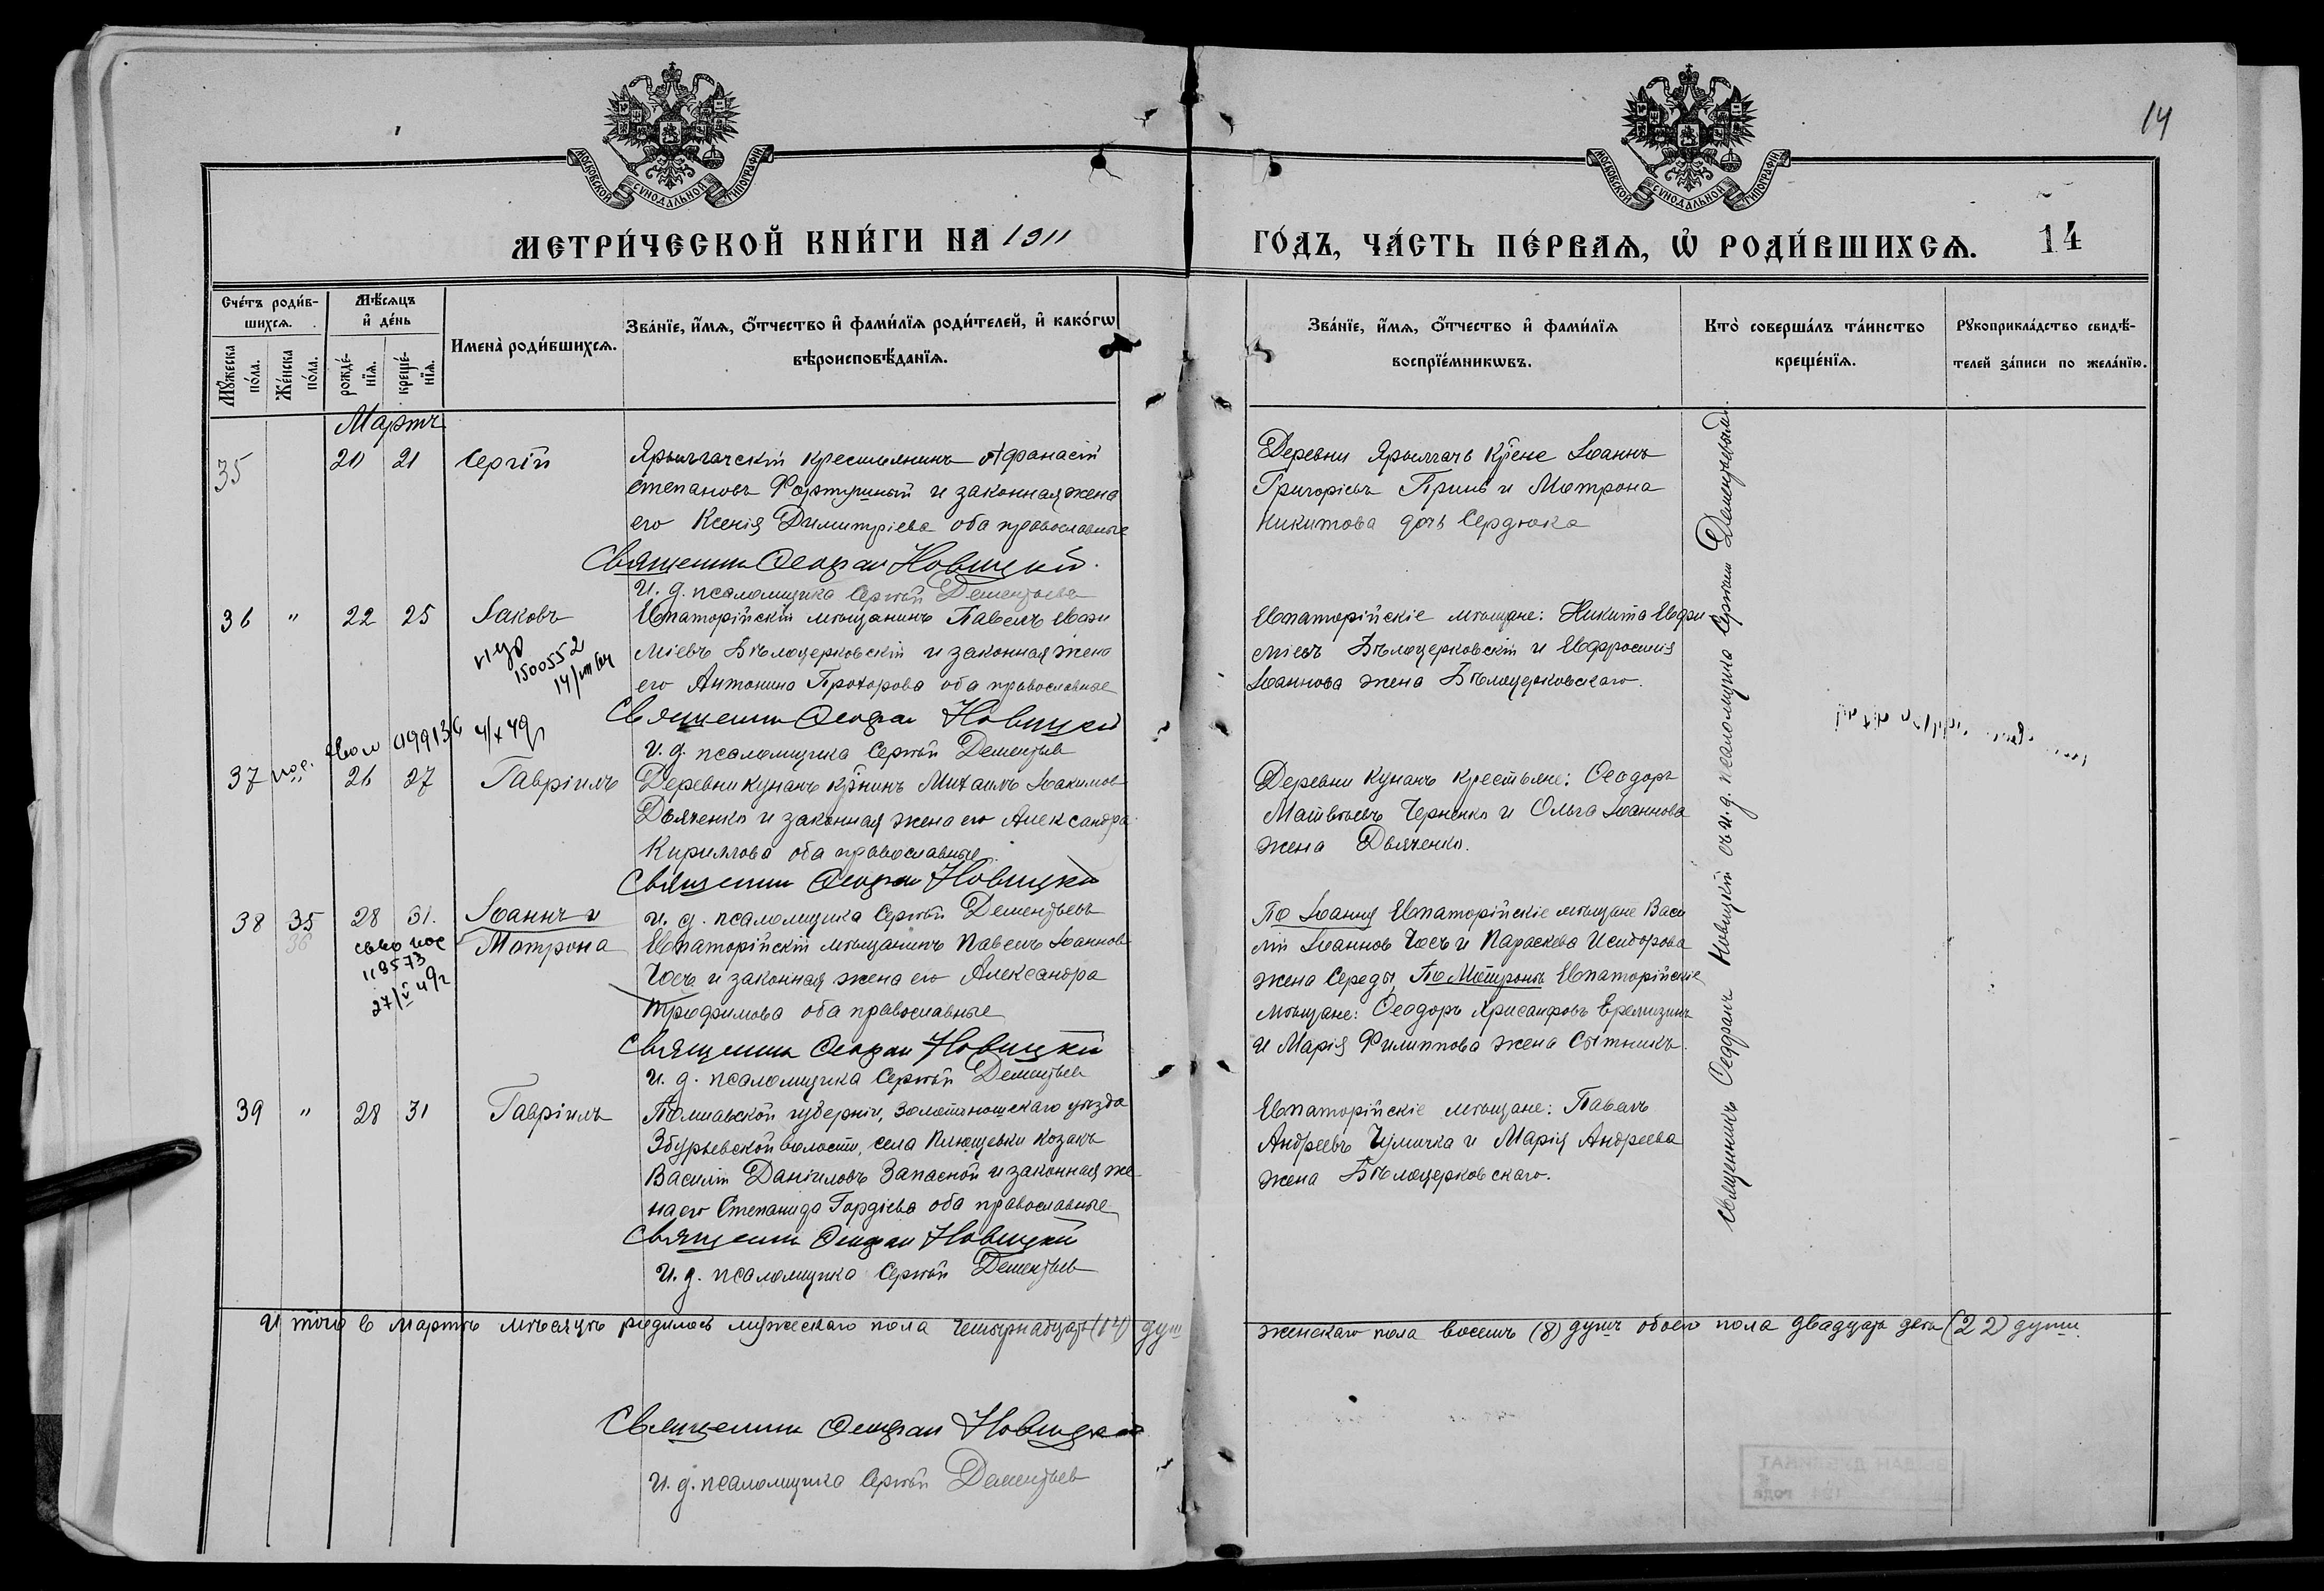 14
МОСКОВСКОЙ СѴНОДАЛЬНОЙ ТИПОГРАФІИ
МОСКОВСКОЙ СѴНОДАЛЬНОЙ ТИПОГРАФІИ
МЕТРИ́ЧЕСКОЙ КНИ́ГИ НА 1911
ГО́ДЪ, ЧА́СТЬ ПЕ́РВАѦ, Ѡ҆ РОДИ́ВШИХСѦ. 14
Сче́тъ роди́в-
шихсѧ.
Мꙋ́жеска по́ла.
Же́нска по́ла.
Мѣ́сѧцъ
и҆ де́нь
рожде́-
нїѧ.
креще́-
нїѧ.
Имена̀ роди́вшихсѧ.
Зва́нїе, и҆́мѧ, ѻ҆́тчество и҆ фами́лїѧ роди́телей, и҆ како́гѡ
вѣроисповѣ́данїѧ.
Зва́нїе, и҆́мѧ, ѻ҆́тчество и҆ фами́лїѧ
воспрїе́мникѡвъ.
Кто̀ соверша́лъ та́инство
креще́нїѧ.
Рꙋкоприкла́дство свидѣ́-
телей за́писи по жела́нїю.
Мартъ
35 20 21 Сергій
Ярылгачскій крестьянинъ Афанасій
Степановъ Фортушный и законная жена
его Ксенія Димитріева оба православные
Священникъ Ѳеофан Новицкій.
И. д. псаломщика Сергій Дементьевъ
Деревни Ярылгачъ кр̃не Іоаннъ
Григорьевъ Принь и Матрона
Никитова дочь Сердюка
36 " 22 25 Іаковъ
1500552
Евпаторійскій мѣщанинъ Павелъ Евфи
міевъ Бѣлоцерковскій и законная жена
его Антонина Прохорова оба православные
Священникъ Ѳеофан Новицкій
И. д. псаломщика Сергѣй Дементьев
Евпаторійскіе мѣщане: Никита Евфи
міевъ Бѣлоцерковскій и Евфросинія
Іоаннова жена Бѣлоцерковскаго.
37 26 27 Гавріилъ
Деревни Кунанъ кр̃нинъ Михаилъ Іоакимов
Дьяченко и законная жена его Александра
Кириллова оба православные.
Священникъ Ѳеофан Новицкій
И. д. псаломщика Сергѣй Дементьевъ
Деревни Кунанъ крестьяне: Ѳеодоръ
Матвѣевъ Черненко и Ольга Іоаннова
жена Дьяченко.
38 35 28 31. Іоаннъ и
36 Матрона
119573
Евпаторійскій мѣщанинъ Павелъ Іоаннов
Чосъ и законная жена его Александра
Трофимова оба православные
Священникъ Ѳеофан Новицкій
И. д. псаломщика Сергѣй Дементьев
По Іоання Евпаторійскіе мѣщане Васи
лій Іоаннов Чосъ и Параскева Исидорова
жена Середы, По Матронѣ Евпаторійскіе
мѣщане: Ѳеодоръ Хрисанфовъ Еремизинъ
и Марія Филиппова жена Сытникъ.
39 " 28 31 Гавріилъ
Полтавской губерніи, Золотоношскаго уѣзда
Збурьевской волости, села Плющевки козакъ
Василій Даніиловъ Запасной и законная же
на его Степанида Гордіева оба православные
Священникъ Ѳеофан Новицкій
И. д. псаломщика Сергѣй Дементьев
Евпаторійскіе мѣщане: Павелъ
Андреевъ Чумичка и Марія Андреева
жена Бѣлоцерковскаго.
Священникъ Ѳеофанъ Новицкій съ и. д. псаломщика Сергѣем Дементьевымъ.
Итого в мартѣ мѣсяцѣ родилось мужескаго пола четырнадцать (14) душ
женскаго пола восемь (8) душъ обоего пола двадцать двѣ (22) души.
Священникъ Ѳеофан Новицкій
И. д. псаломщика Сергѣй Дементьев